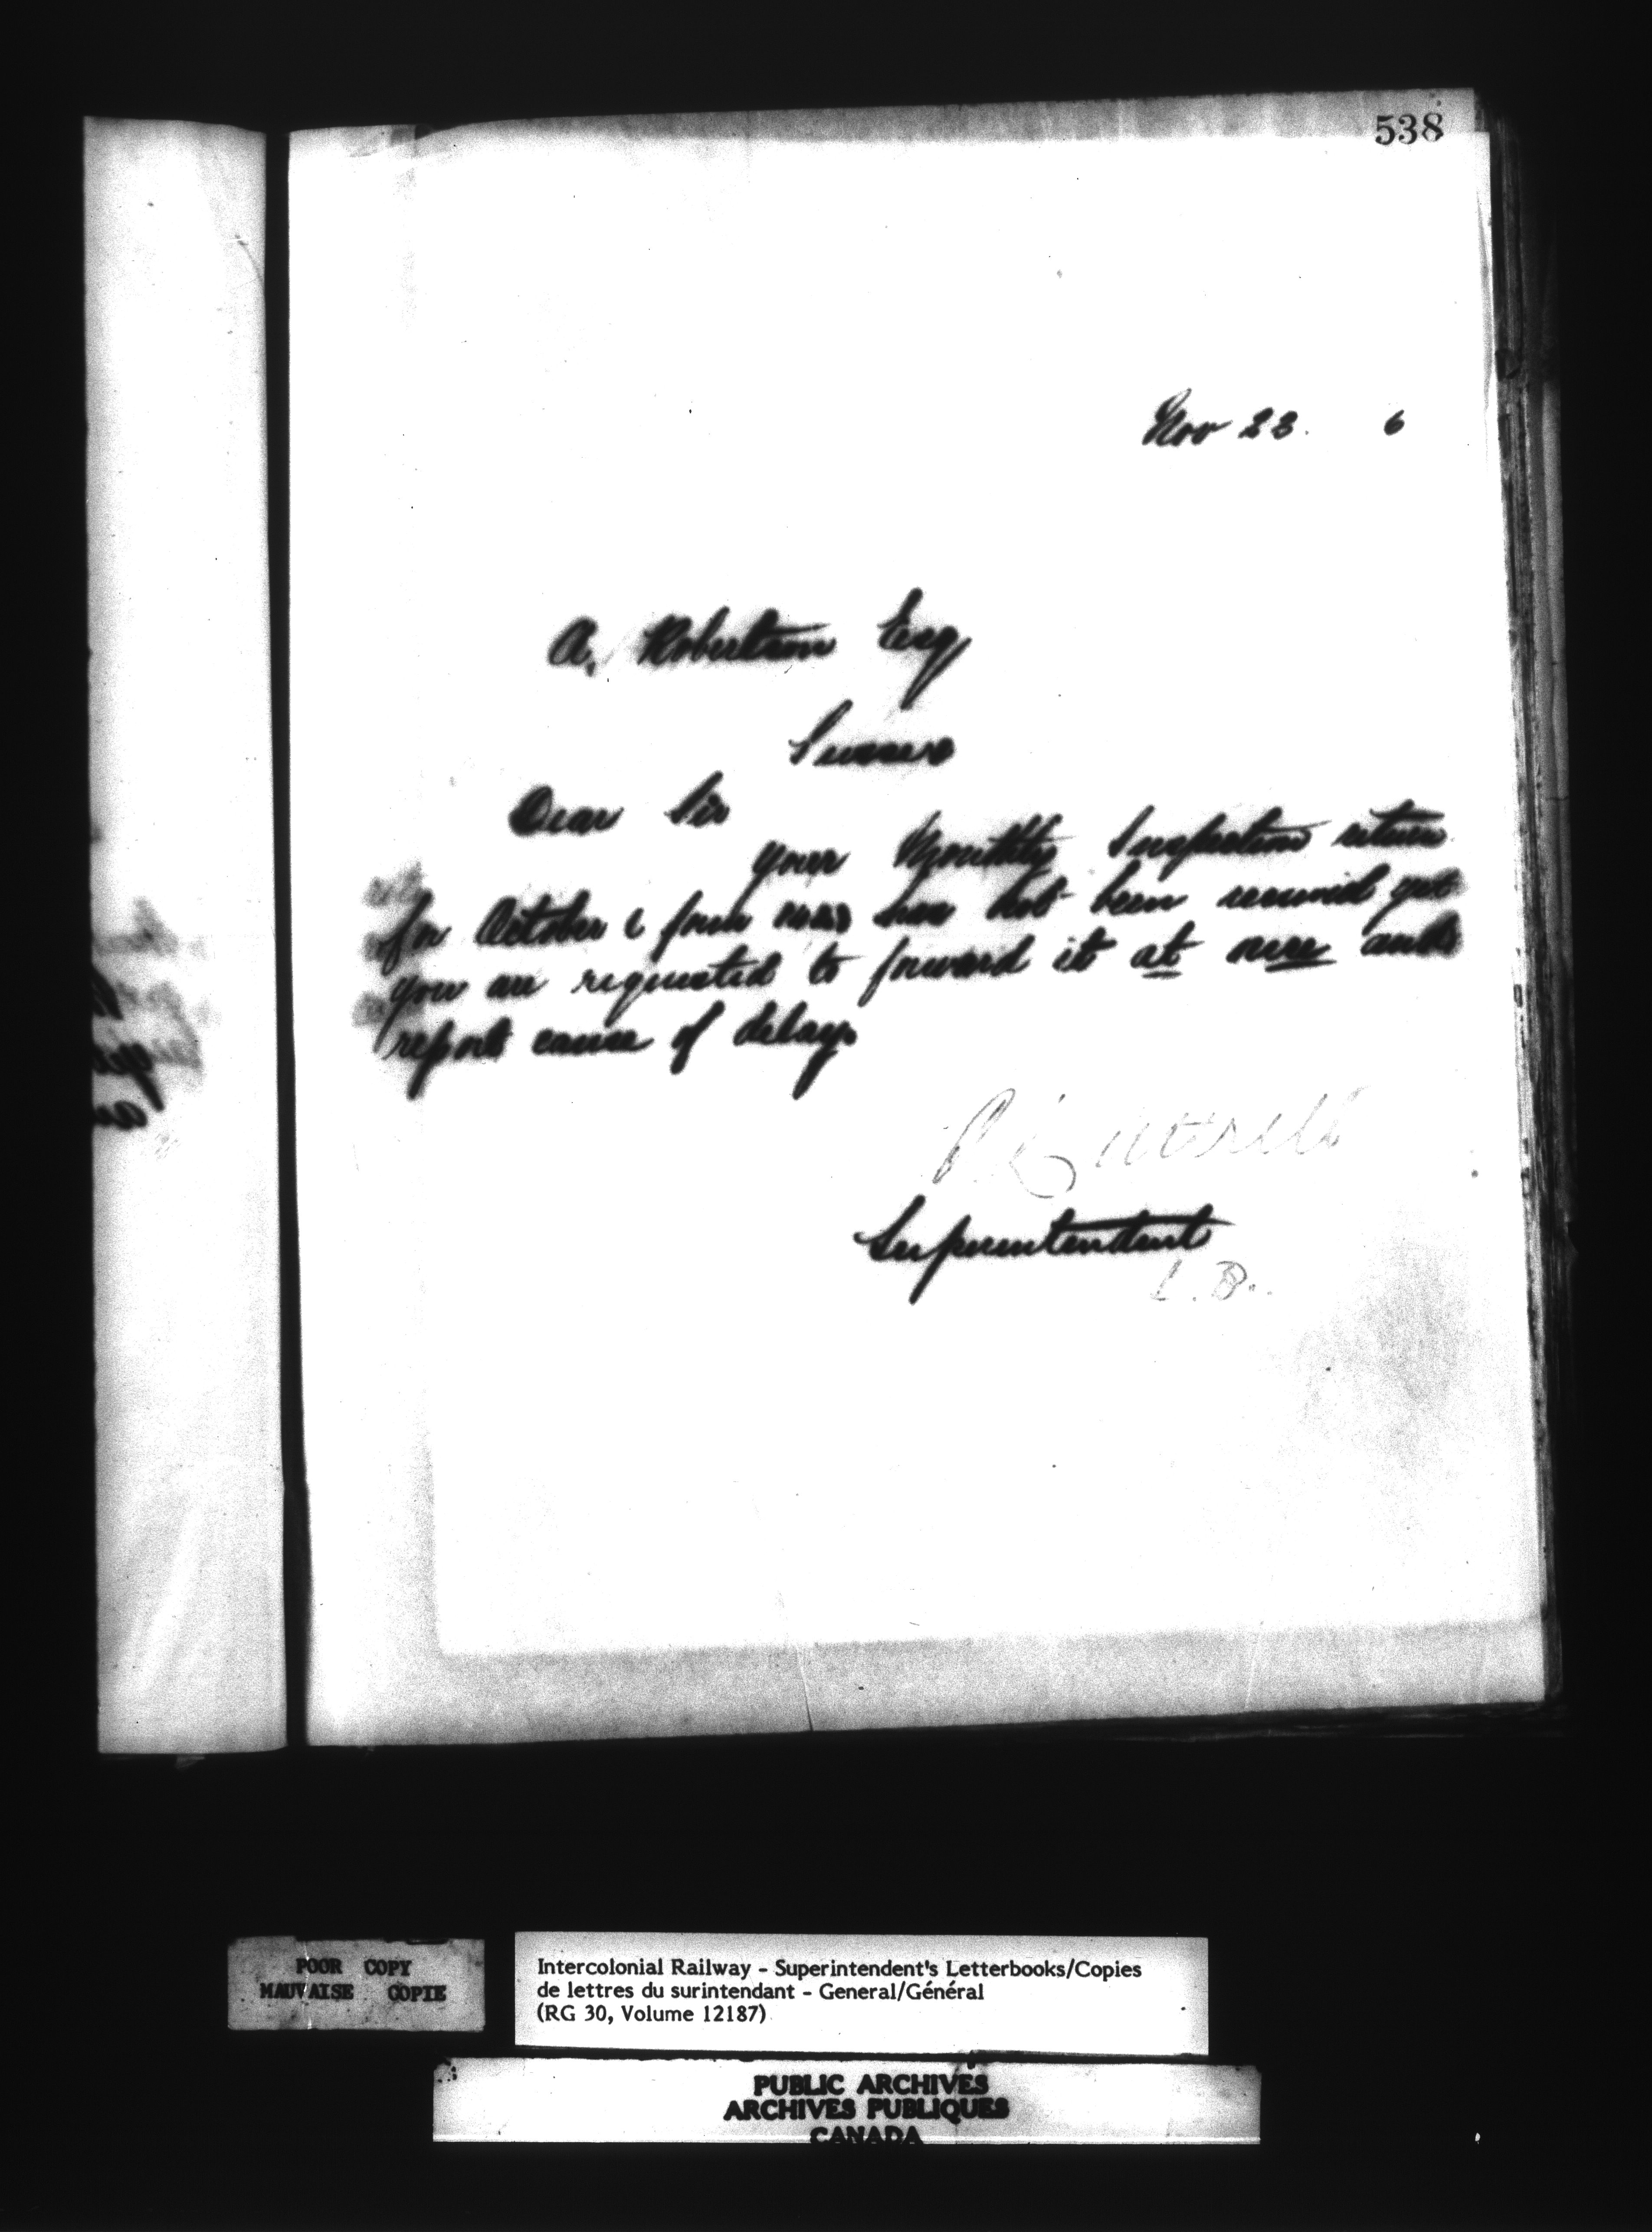 538
Nov 23. 6
A. Robertson Esq
Sussex
Dear Sir
your Monthly Inspection return
for October & form has not been received yet
you are requested to forward it at once and
report cause of delay.
Superintendent
L. B.
POOR COPY
MAUVAISE COPIE
Intercolonial Railway - Superintendent's Letterbooks/Copies
de lettres du surintendant - General/Général
(RG 30, Volume 12187)
PUBLIC ARCHIVES
ARCHIVES PUBLIQUES
CANADA